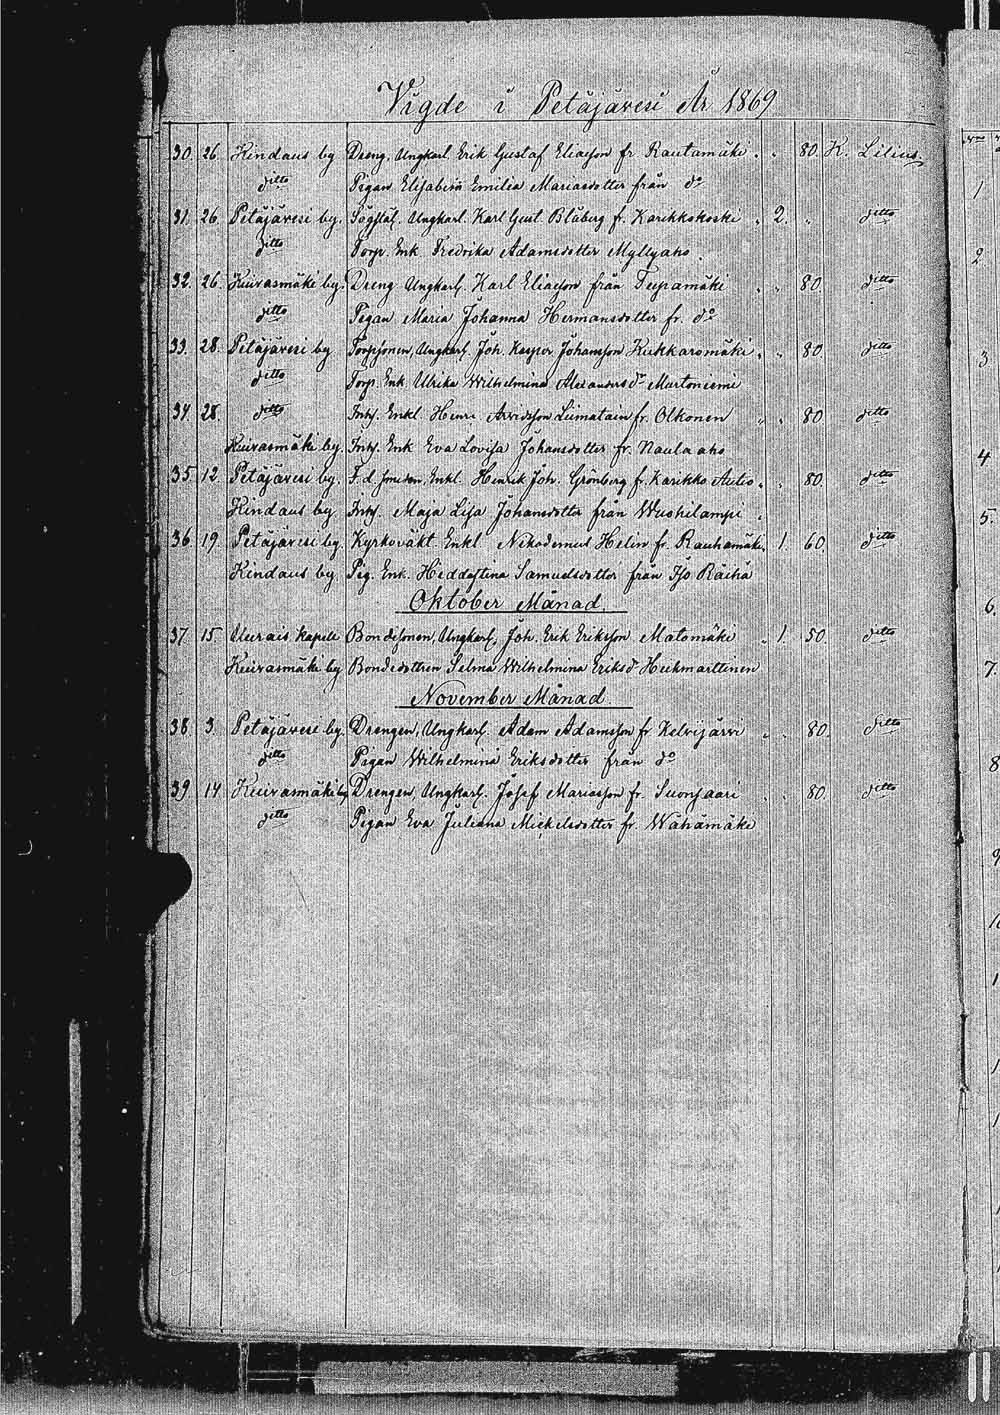 Vigde i Petäjävesi År 1869
30. 26. Kindaus by Dreng, Ungkarl. Erik Gustaf Eliasson fr Rautamäki " " 80. K Lilius
ditto Pigan Elisabeth Emilia Mariasdotter från do
31. 26. Petäjävesi by. Ungkarl. Karl Gust Blåberg fr. Karikkokoski " 2. " ditto
ditto Torp. Enk Fredrika Adamsdotter Myllyaho
32. 26. Kuivasmäki by. Dreng Ungkarl. Karl Eliasson från Tupamäki " " 80. ditto
ditto Pigan Maria Johanna Hermansdotter fr. do
33. 28. Petäjävesi by Torpsonen, Ungkarl. Joh. Kasper Johansson Kukkaromäki " " 80. ditto
ditto Torp. Enk. Ulrika Wilhelmina Alexandersdr Martoniemi
34 28. ditto Inhs. Enkl. Henri Arvidsson Liimatain fr. Olkonen " " 80 ditto
Kuivasmäki by. Inhs. Enk Eva Lovisa Johansdotter fr. Naulaaho
35. 12. Petäjävesi by. F.d. Enkl. Henrik Joh. Grönberg fr. Karikko Autio " " 80. ditto
Kindaus by Inhs. Maja Lisa Johansdotter från Wuohilampi
36 19. Petäjävesi by. Kyrkoväkt Enkl Nikodemus Helin fr. Rauhamäki " 1. 60. ditto
Kindaus by Pig. Enk. Heddastina Samuelsdotter från Iso Räihä
Oktober Månad.
37. 15. Uurais kapell Bondesonen, Ungkarl, Joh. Erik Eriksson Matomäki " 1. 50. ditto
Kuivasmäki by Bondedottren Selma Wilhelmina Eriksdr Heikmarttinen
November Månad
38. 3. Petäjävesi by. Drengen, Ungkarl. Adam Adamsson fr Kelvijärvi " " 80. ditto
ditto Pigan Wilhelmina Eriksdotter från do
39 14. Kuivasmäki by Drengen, Ungkarl. Josef Mariasson fr. Suonsaari " " 80. ditto
ditto Pigan Eva Juliana Mickelsdotter fr. Wähämäki
1
2
3
4
5.
6.
7.
8